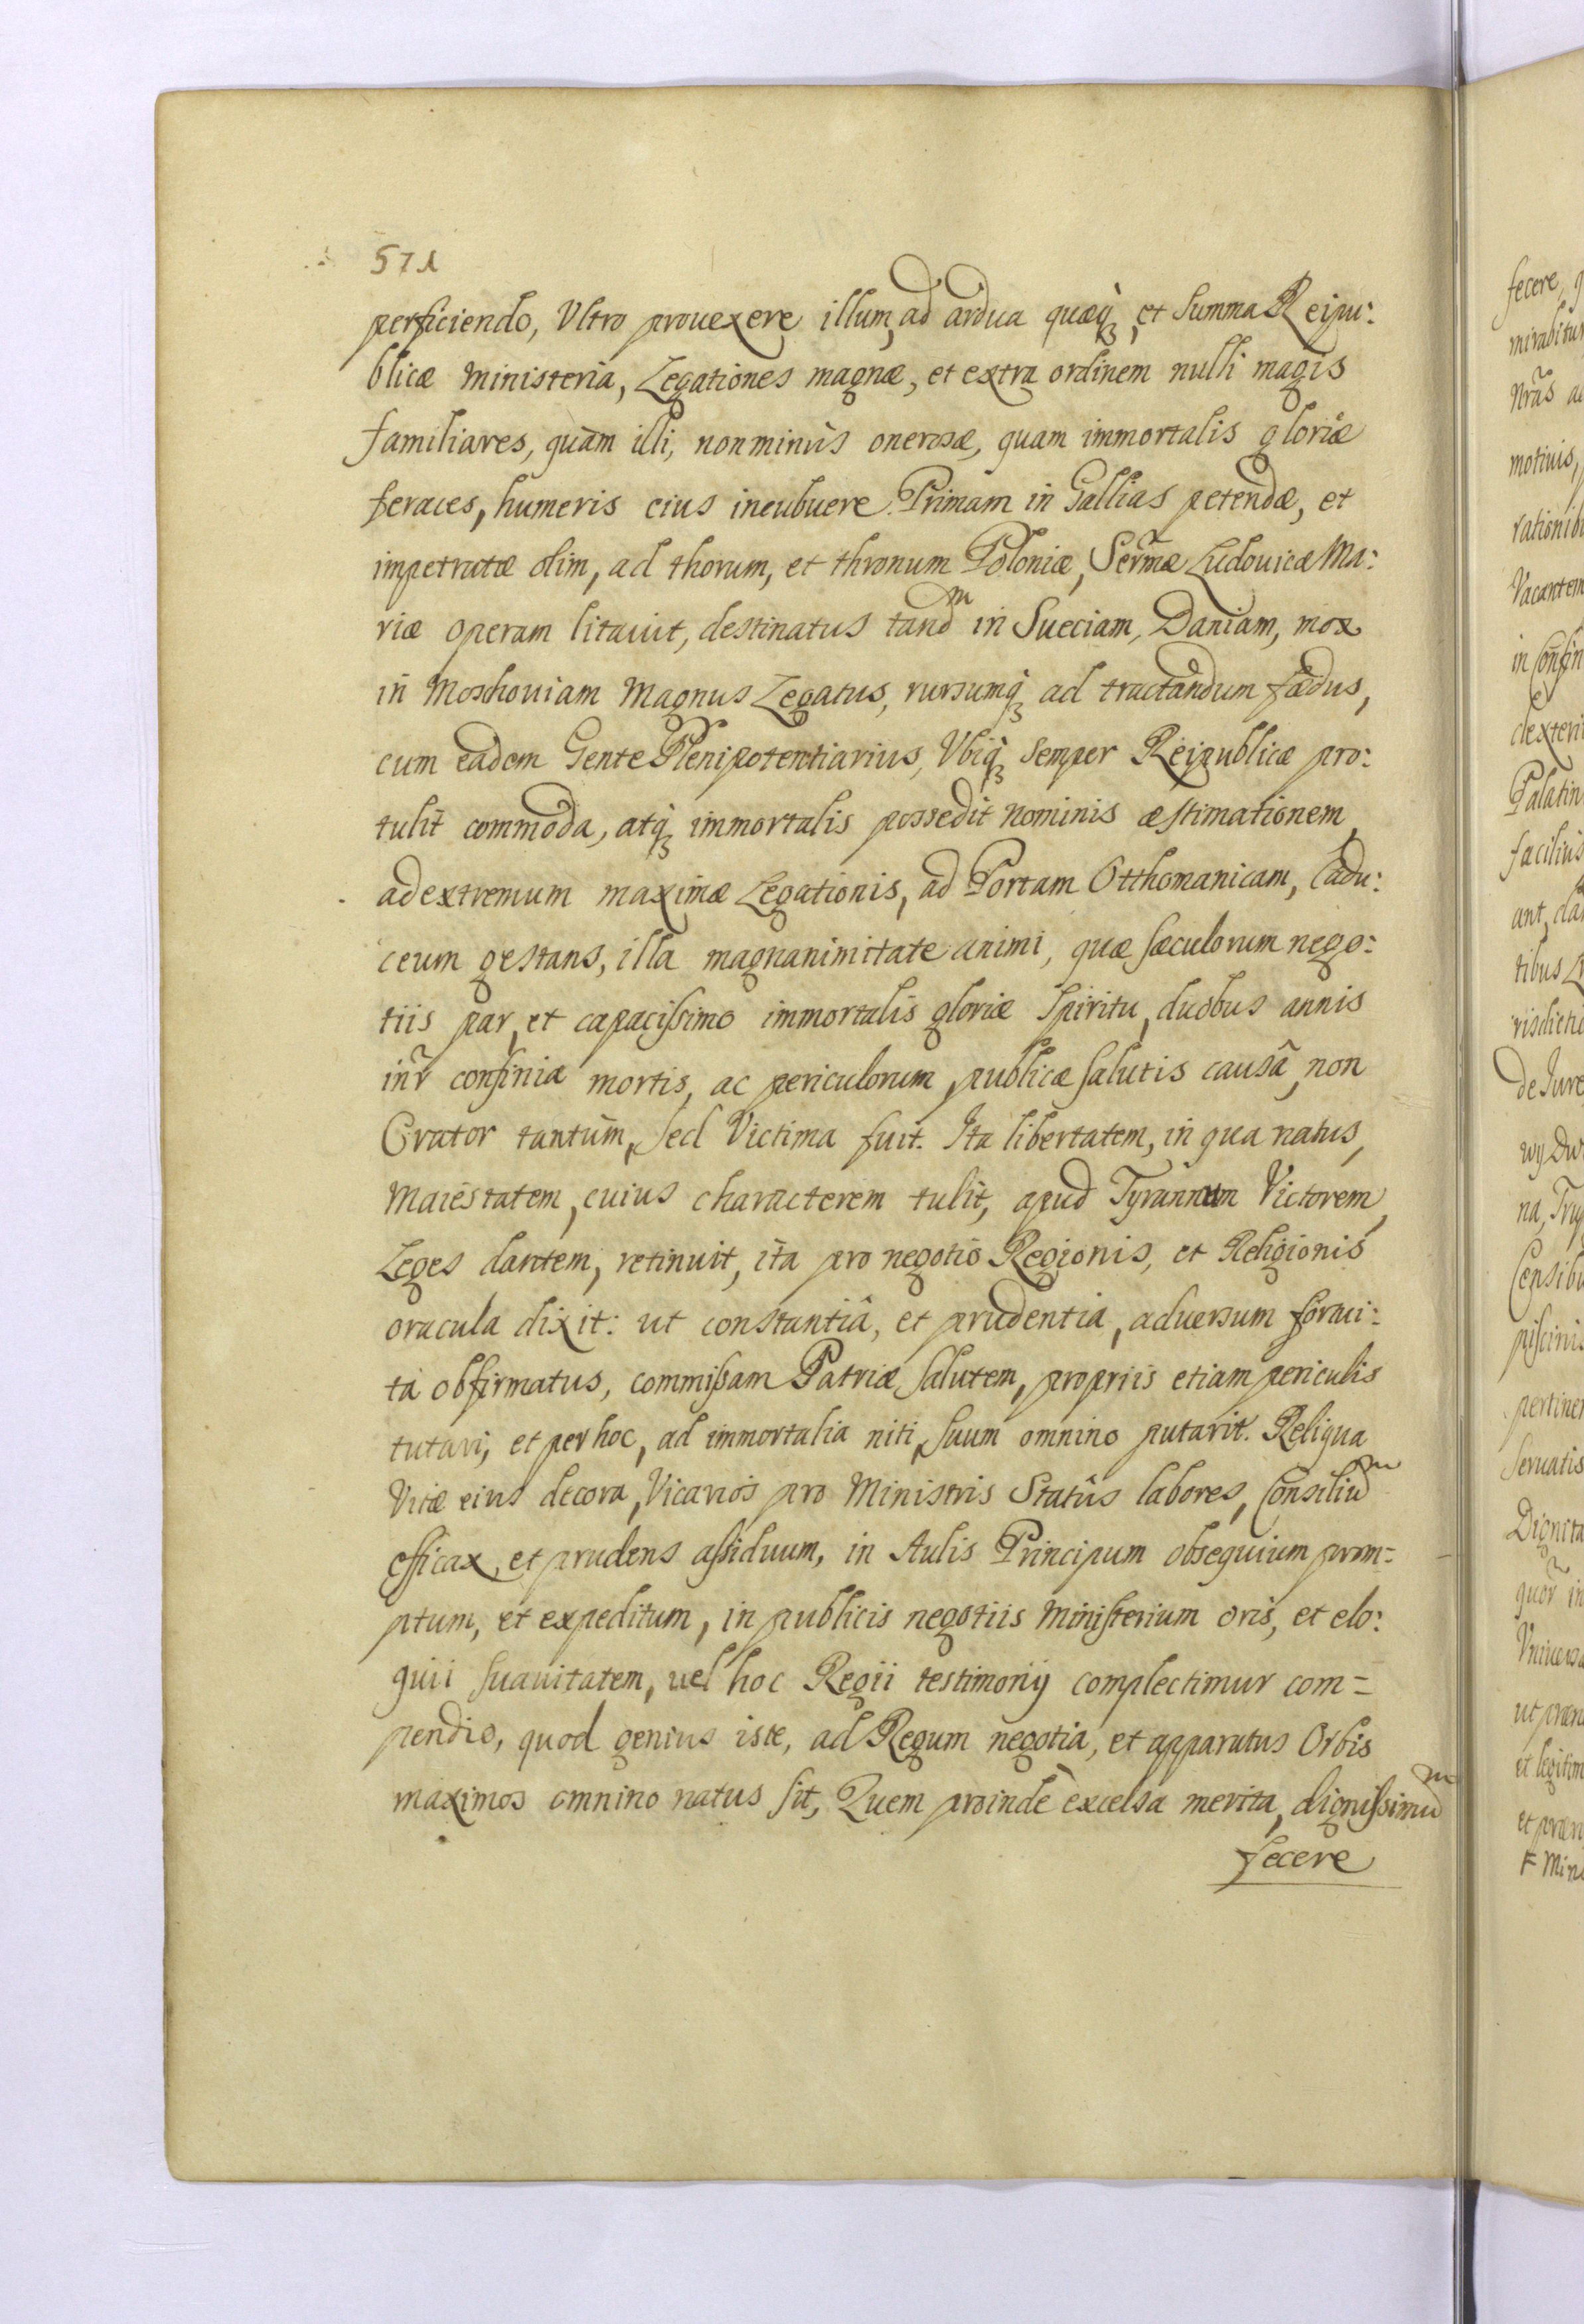 571
perficiendo, Vltro prouexere illum, ad ardua quæq́ꝫ, et Summa Reipu:
blicæ ministeria, Legationes magnæ, et extra ordinem nulli magis
familiares, quàm illi, non minùs onerosæ, quam immortalis gloriæ
feraces, humeris eius incubuere. Primam in Gallias petendæ, et
impetratæ olim, ad thorum, et thronum Poloniæ, Serm̃æ Ludouicæ Ma:
riæ operam litauit, destinatus tandᵐ in Sueciam, Daniam, mox
in Moschouiam Magnus Legatus, rursumq́ꝫ ad tractandum fædus,
cum eadem Gente Plenipotentiarius, Vbiq́ꝫ semper Reipublicæ pro:
tulit commoda, atq́ꝫ immortalis possedit nominis æstimationem,
ad extremum maximæ Legationis, ad Portam Otthomanicam, Cadu:
ceum gestans, illa magnanimitate animi, quæ sæculorum nego:
tiis par, et capacissimo immortalis gloriæ Spiritu, duobus annis
int̃r confinia mortis, ac periculorum, publicæ salutis causâ, non
Orator tantùm, sed Victima fuit. Ita libertatem, in qua natus,
Maiestatem, cuius characterem tulit, apud Tyrannum Victorem,
Leges dantem, retinuit, ita pro negotio Regionis, et Religionis
oracula dixit: ut constantiâ, et prudentia, aduersum fortui:
ta obfirmatus, commissam Patriæ salutem, propriis etiam periculis
tutari, et per hoc, ad immortalia niti, suum omnino putarit. Reliqua
Vitæ eius decora, Vicarios pro Ministris Statûs labores, Consiliuᵐ
efficax, et prudens assiduum, in Aulis Principum obsequium prom=
ptum, et expeditum, in publicis negotiis ministerium oris, et elo:
quii suauitatem, uel hoc Regii testimonij complectimur com=
pendio, quod genius iste, ad Regum negotia, et apparatus Orbis
maximos omnino natus sit, Quem proindè excelsa merita, dignissimuᵐ
fecere